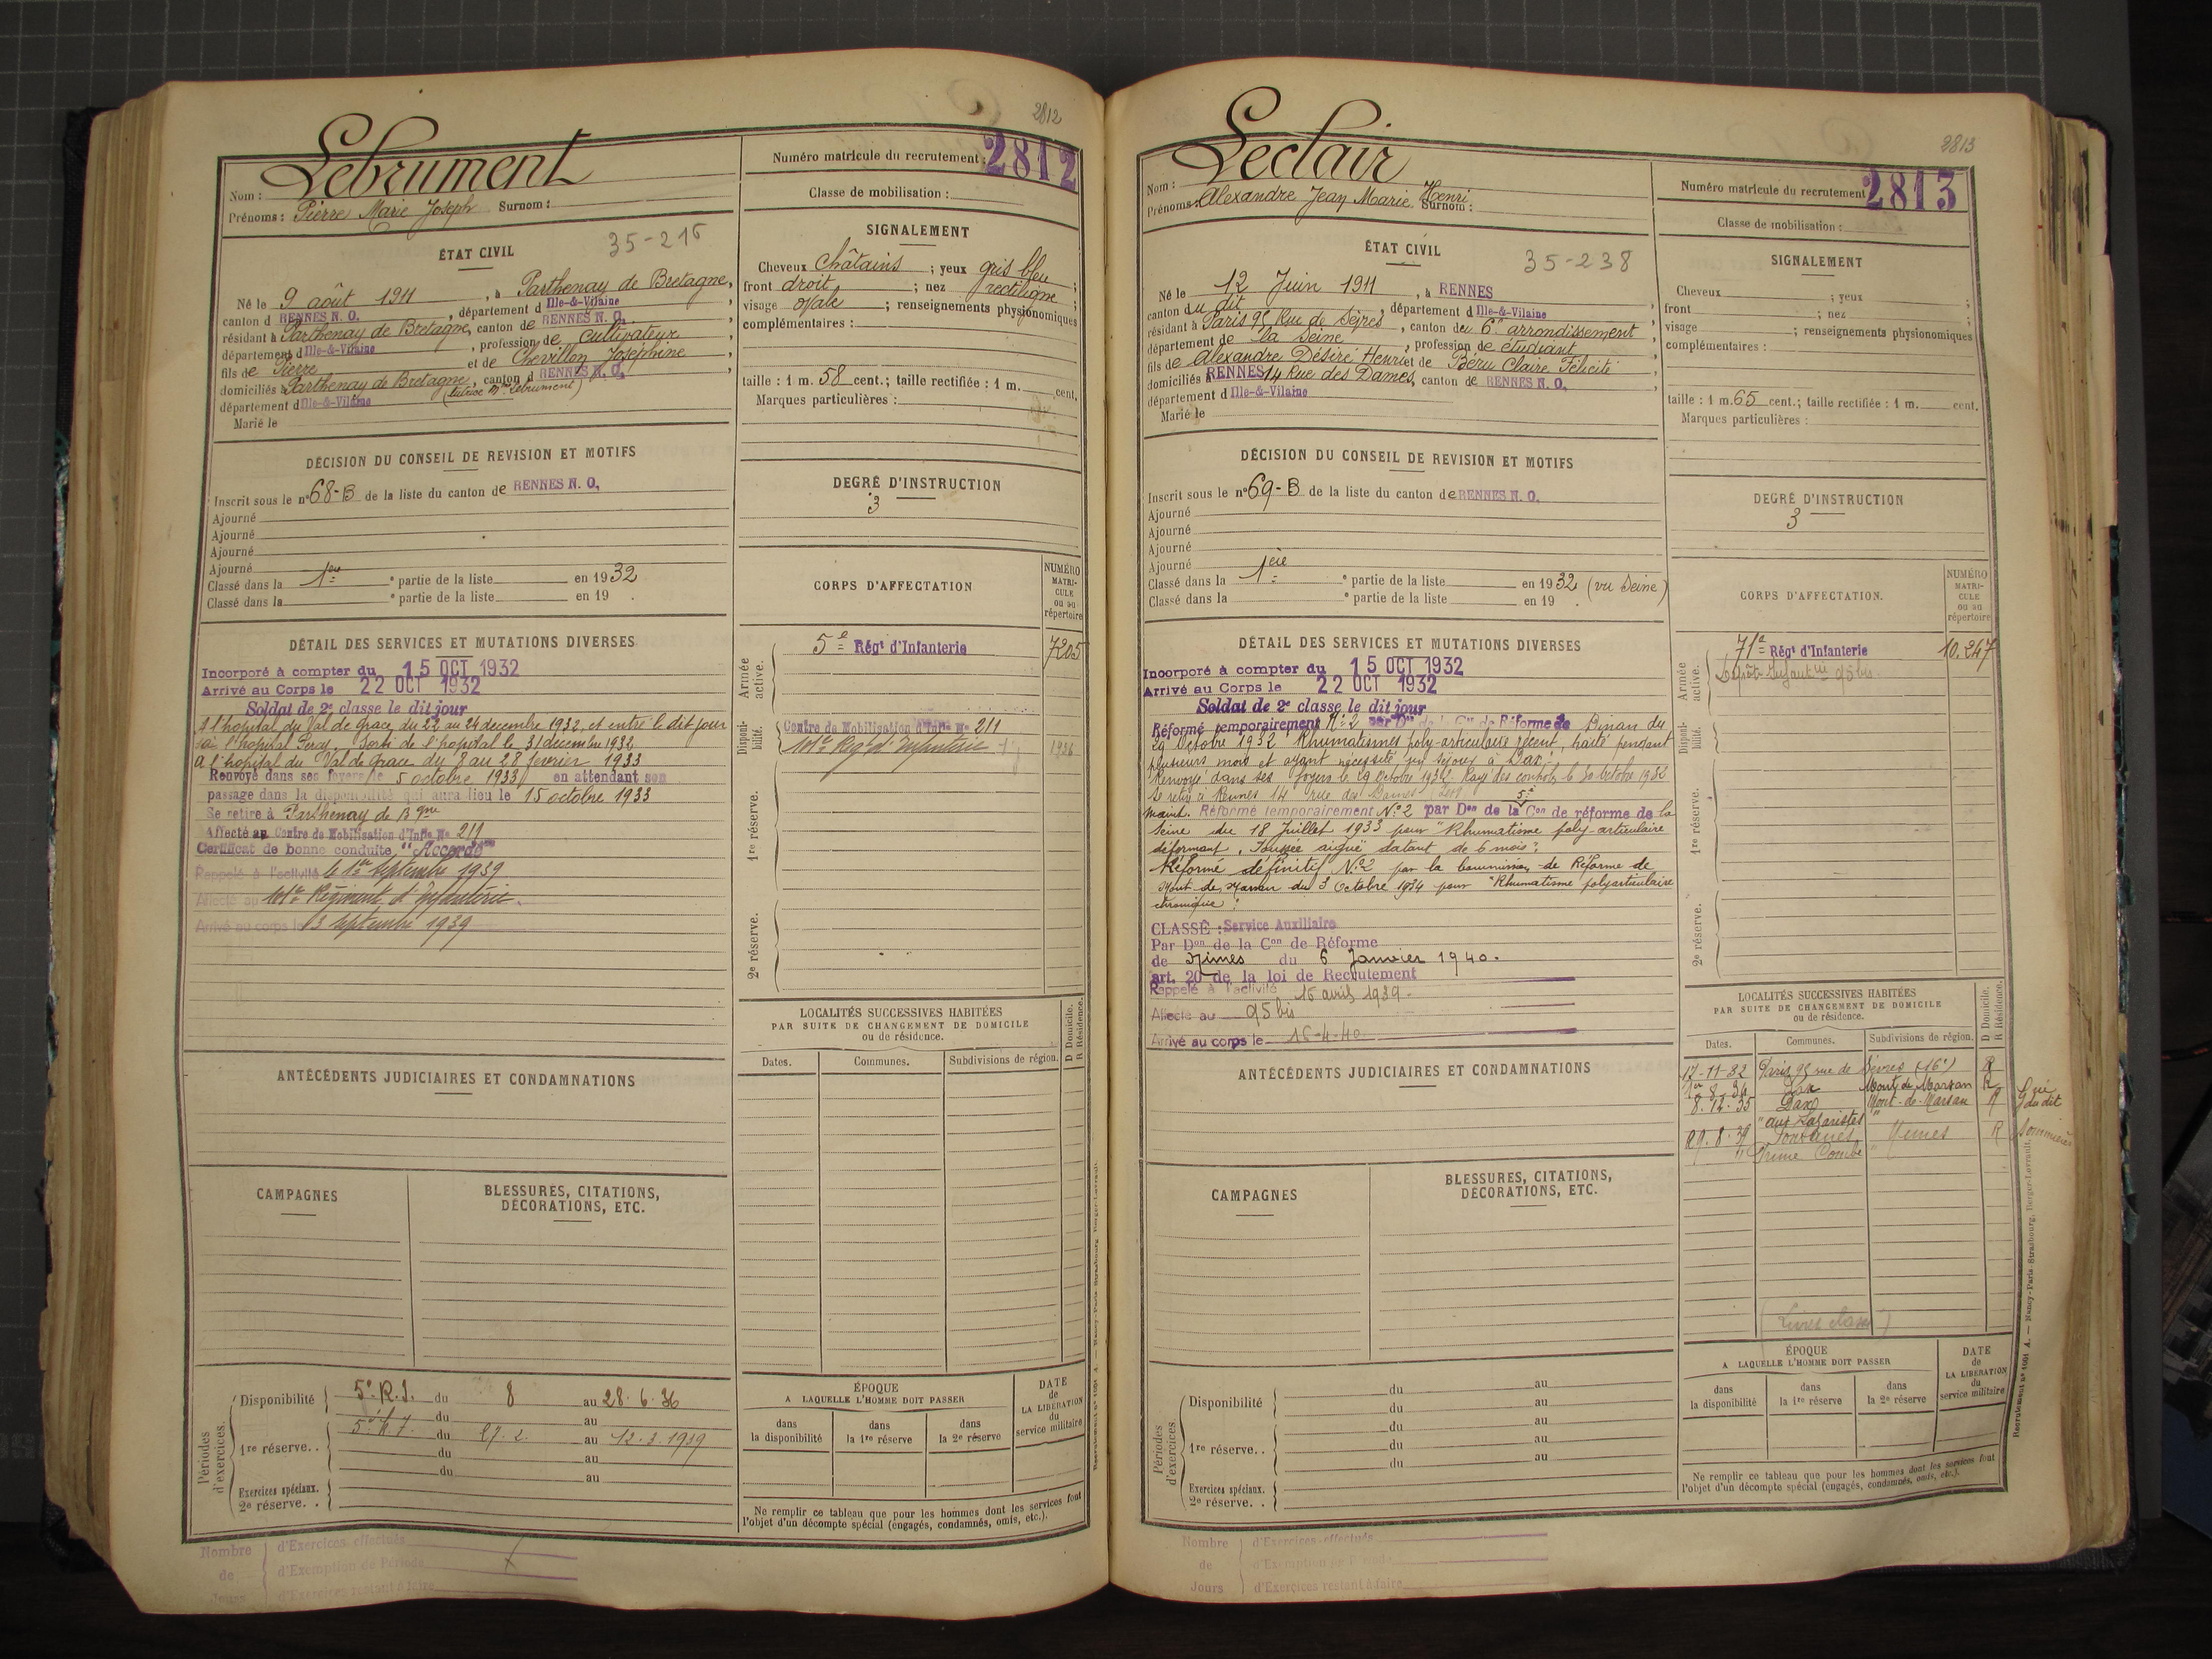 2812
Nom : Lebrument
Prénoms : Pierre Marie Joseph Surnom :
Numéro matricule du recrutement : 2812
Classe de mobilisation :
ÉTAT CIVIL
35-216
Né le 9 août 1911, à Parthenay de Bretagne,
canton d RENNES N. O., département d Ille-&-Vilaine,
résidant à Parthenay de Bretagne, canton de RENNES N. O.,
département d Ille-&-Vilaine, profession de cultivateur
fils de Pierre et de Chevillon Joséphine,
domiciliés à Parthenay de Bretagne, canton d RENNES N. O.,
département d Ille-&-Vilaine (tutrice Mme Lebrument)
Marié le
SIGNALEMENT
Cheveux châtains ; yeux gris bleu ;
front droit ; nez rectiligne ;
visage ovale ; renseignements physionomiques
complémentaires :
taille : 1 m. 58 cent.; taille rectifiée : 1 m. cent.
Marques particulières :
DÉCISION DU CONSEIL DE REVISION ET MOTIFS
Inscrit sous le n° 68-B de la liste du canton de RENNES N. O.
Ajourné
Ajourné
Ajourné
Ajourné
Classé dans la 1ère partie de la liste en 1932
Classé dans la e partie de la liste en 19 .
DEGRÉ D'INSTRUCTION
3
CORPS D'AFFECTATION
NUMÉRO MATRICULE ou au répertoire
Armée active.
5e Régt d'Infanterie 7205
Disponibilité.
Centre de Mobilisation d'Infie No 211
1re réserve.
2e réserve.
DÉTAIL DES SERVICES ET MUTATIONS DIVERSES
Incorporé à compter du 15 OCT 1932
Arrivé au Corps le 22 OCT 1932
Soldat de 2e classe le dit jour
A l'hopital du Val de Grace du 22 au 24 decembre 1932, et entré le dit jour
à l'hopital Percy. Sorti de l'hopital le 31 decembre 1932
A l'hopital du Val de Grace du 8 au 28 fevrier 1933
Renvoyé dans ses foyers le 5 octobre 1933 en attendant son
passage dans la disponibilité qui aura lieu le 15 octobre 1933
Se retire à Parthenay de Bgne
Affecté au Centre de Mobilisation d'Infie No 211
Certificat de bonne conduite "Accordé"
Rappelé à l'activité le 1er Septembre 1939
Affecté au Régiment d'Infanterie.
Arrivé au corps le 3 Septembre 1939
LOCALITÉS SUCCESSIVES HABITÉES
PAR SUITE DE CHANGEMENT DE DOMICILE
ou de résidence.
D Domicile.
R Résidence.
Dates. Communes. Subdivisions de région.
ANTÉCÉDENTS JUDICIAIRES ET CONDAMNATIONS
CAMPAGNES
BLESSURES, CITATIONS,
DÉCORATIONS, ETC.
Périodes d'exercices.
Disponibilité 5e R.I. du 8 au 28.6.36
du au
1re réserve. . du 27.2. au 12.3.1939
du au
du au
Exercices spéciaux.
2e réserve. .
ÉPOQUE
A LAQUELLE L'HOMME DOIT PASSER
dans la disponibilité
dans la 1re réserve
dans la 2e réserve
DATE de LA LIBÉRATION du service militaire
Ne remplir ce tableau que pour les hommes dont les services font
l'objet d'un décompte spécial (engagés, condamnés, omis, etc.).
Nombre de Jours
d'Exercices effectués
d'Exemption de Période
d'Exercices restant à faire
2813
Nom : Leclair
Prénoms : Alexandre Jean Marie Henri
Surnom :
Numéro matricule du recrutement 2813
Classe de mobilisation :
ÉTAT CIVIL
35-238
Né le 12 Juin 1911, à RENNES
canton du dit, département d Ille-&-Vilaine,
résidant à Paris 95 Rue de Sèvres, canton du 6e arrondissement,
département de la Seine, profession de étudiant
fils de Alexandre Désiré Henri et de Béru Claire Félicité
domiciliés à RENNES 14 Rue des Dames, canton de RENNES N. O.,
département d Ille-&-Vilaine
Marié le
SIGNALEMENT
Cheveux ; yeux ;
front ; nez ;
visage ; renseignements physionomiques
complémentaires :
taille : 1 m. 65 cent.; taille rectifiée : 1 m. cent.
Marques particulières :
DÉCISION DU CONSEIL DE REVISION ET MOTIFS
Inscrit sous le n° 69-B de la liste du canton de RENNES N. O.
Ajourné
Ajourné
Ajourné
Ajourné
Classé dans la 1ère partie de la liste en 1932 (vu Seine)
Classé dans la e partie de la liste en 19 .
DEGRÉ D'INSTRUCTION
3
CORPS D'AFFECTATION.
NUMÉRO MATRICULE ou au répertoire
Armée active.
71e Régt d'Infanterie 10.247
Dépôt Infanterie 95 bis
Disponibilité.
1re réserve.
2e réserve.
DÉTAIL DES SERVICES ET MUTATIONS DIVERSES
Incorporé à compter du 15 OCT 1932
Arrivé au Corps le 22 OCT 1932
Soldat de 2e classe le dit jour
Réformé temporairement No 2 par Don de la Con de Réforme de Dinan du
29 Octobre 1932 "Rhumatismes poly-articulaire récent, traité pendant
plusieurs mois et ayant nécessité un séjour à Dax."
Renvoyé dans ses foyers le 29 Octobre 1932. Rayé des contrôles le 30 Octobre 1932
Se retire à Rennes 14 rue des Dames
Maint. Réformé temporairement No 2 par Don de la 5e Con de réforme de la
Seine du 18 Juillet 1933 pour "Rhumatisme poly-articulaire
déformant. Poussée aiguë datant de 6 mois".
Réformé définitif No 2 par la Commission de Réforme de
Mont de Marsan du 3 Octobre 1934 pour "Rhumatisme polyarticulaire
chronique".
CLASSÉ : Service Auxiliaire
Par Don de la Con de Réforme
de Nimes du 6 Janvier 1940.
art. 20 de la loi de Recrutement
Rappelé à l'activité 16 avril 1939.
Affecté au 95 bis
Arrivé au corps le 16-4-40.
LOCALITÉS SUCCESSIVES HABITÉES
PAR SUITE DE CHANGEMENT DE DOMICILE
ou de résidence.
D Domicile.
R Résidence.
Dates. Communes. Subdivisions de région.
17-11-32 Paris 95 rue de Sèvres (16e) R
1er 8. 34 Dax Mont de Marsan R
8.12.35 Dax Mont-de-Marsan R du dit
"aux Lazaristes"
29.8.39 Fontanès Nimes R Sommières
Prime Combe
(Livret classé)
ANTÉCÉDENTS JUDICIAIRES ET CONDAMNATIONS
CAMPAGNES
BLESSURES, CITATIONS,
DÉCORATIONS, ETC.
Périodes d'exercices.
Disponibilité du au
du au
1re réserve. . du au
du au
du au
Exercices spéciaux.
2e réserve. .
ÉPOQUE
A LAQUELLE L'HOMME DOIT PASSER
dans la disponibilité
dans la 1re réserve
dans la 2e réserve
DATE de LA LIBÉRATION du service militaire
Ne remplir ce tableau que pour les hommes dont les services font
l'objet d'un décompte spécial (engagés, condamnés, omis, etc.).
Recrutement n° 1001 A. — Nancy-Paris-Strasbourg, Berger-Levrault.
Nombre de Jours
d'Exercices effectués
d'Exemption de Période
d'Exercices restant à faire